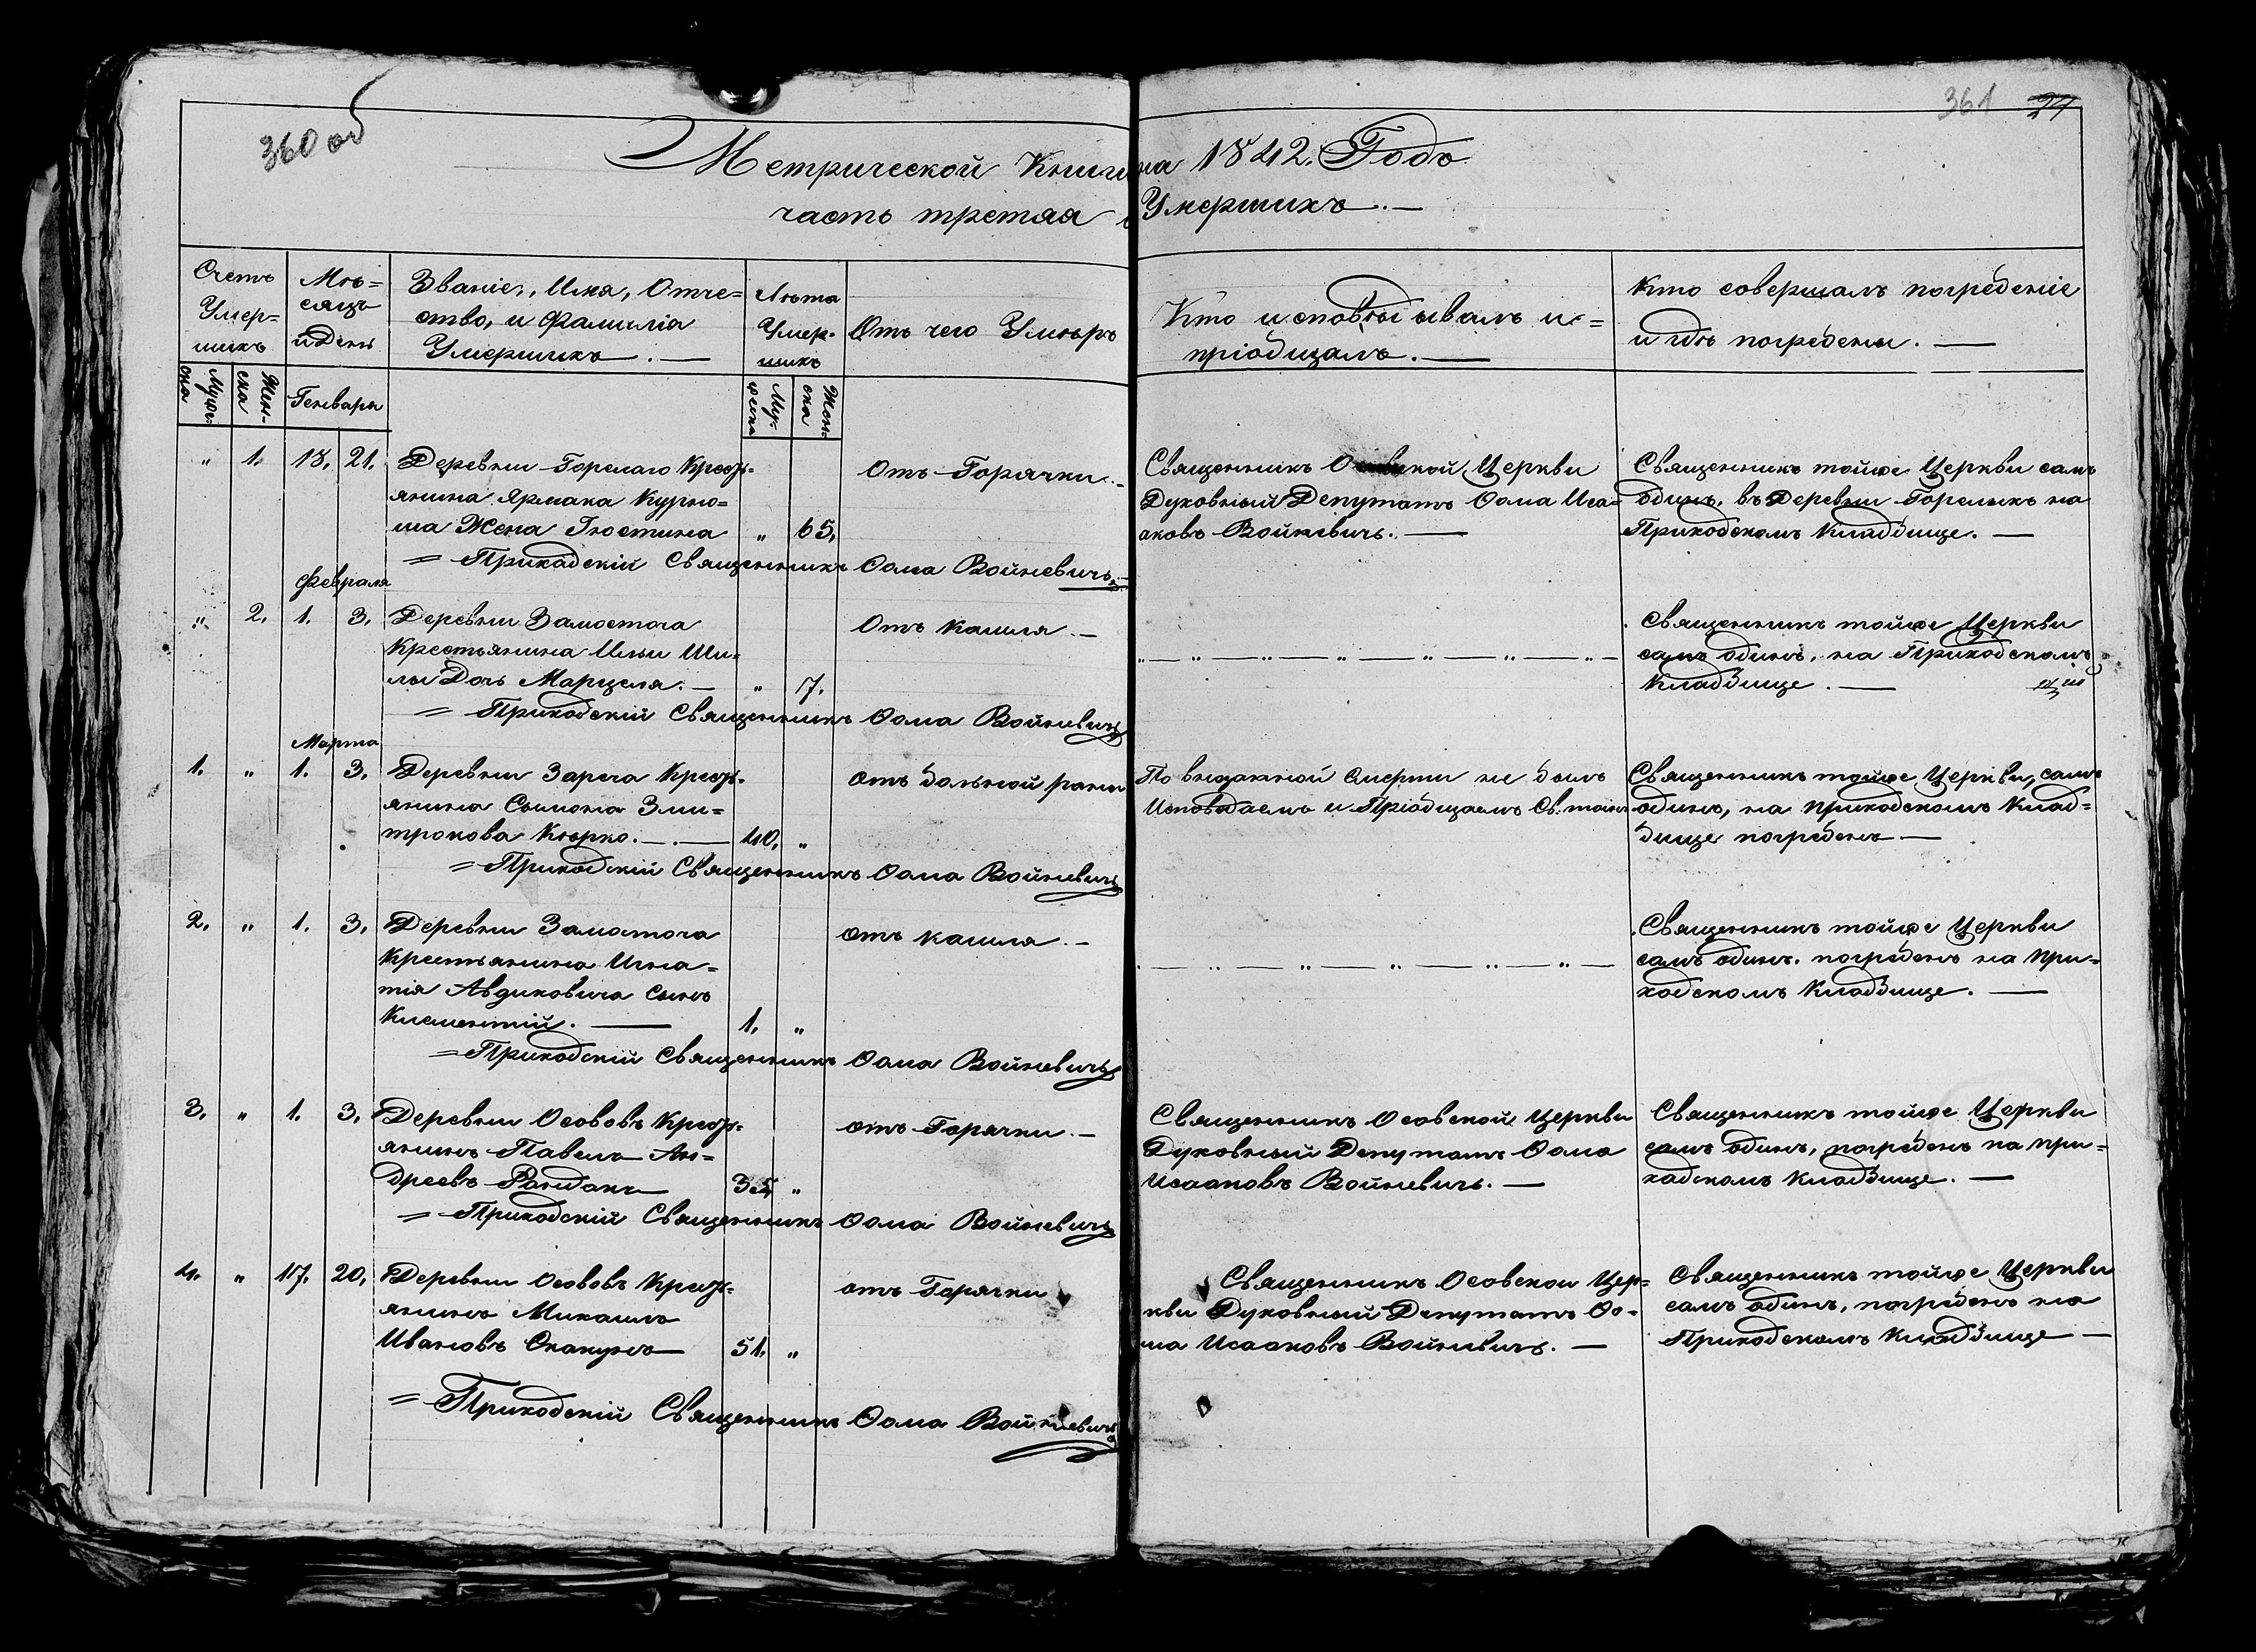 360 об
361 27
Метрической Книги на 1842. Годъ
часть третяя о Умершихъ. —
Счетъ Умер= шихъ
Мѣ= сяцъ и День
Званіе, Имя, Отче= ство, и Фамилія Умершихъ. —
Лѣта Умер- шихъ
Отъ чего Умѣръ
Кто исповѣдывалъ и= пріобщалъ. —
Кто совершалъ погребеніе и гдѣ погребены. —
Мужеска
Женска
Генваря
Мужеска
Женска
" 1. 18. 21. Деревни Горелаго Кресть=
янина Ярмака Курно=
ша Жена Іюстина " 65.
Отъ Горячки. —
Священникъ Церкви
Духовный Депутатъ Ѳома Иса=
аковъ Войневичъ. —
Священникъ тойже Церкви самъ
одинъ, въ Деревни Горелыхъ на
Приходскомъ Кладбище. —
=Прихадскій Священникъ Ѳома Войневичъ
Февраля
" 2. 1. 3. Деревни Замосточа
Крестьянина Ильи Ши=
лы Дочь Марцеля. — " 7.
Отъ кашля. —
" — " — " — " — " — " — " —
Священникъ тойже Церкви
самъ одинъ, на Приходскомъ
Кладбище. —
= Приходскій Священникъ Ѳома Войневичъ
Марта
1. " 1. 3. Деревни Зареча Кресть=
янина Сымона Зми=
трокова Кюрко. — . — 40. "
отъ больной раны
По внезапной Смерти не былъ
Исповѣдаемъ и Пріобщаемъ Св. таинъ
Священникъ тойже Церкви, самъ
одинъ, на приходскомъ Клад=
бище погребенъ —
= Приходскій Священникъ Ѳома Войневичъ
2. " 1. 3. Деревни Замосточа
Крестьянина Игна=
тія Авдиковича сынъ
Клементій. — 1. "
отъ кашля. —
— " — " — " — " — " —
Священникъ тойже Церкви
самъ одинъ. погребенъ на при=
ходскомъ Кладбище. —
= Приходскій Священникъ Ѳома Войневичъ
3. " 1. 3. Деревни Ососовъ Кресть=
янинъ Павелъ Ан=
дреевъ Рондакъ 35 "
отъ Горячки. —
Священникъ Осовской Церкви
Духовный Депутатъ Ѳома
Исааковъ Войневичъ. —
Священникъ тойже Церкви
самъ одинъ, погребенъ на при=
хадскомъ Кладбище. —
= Приходскій Священникъ Ѳома Войневичъ
4. " 17. 20. Деревни Ососовъ Кресть=
янинъ Михаилъ
Ивановъ Скакунъ 51. "
отъ Горячки
Священникъ Осовской Цер=
кви Духовный Депутатъ Ѳо=
ма Исааковъ Войневичъ. —
Священникъ тойже Церкви
самъ одинъ, погребенъ на
Приходскомъ Кладбище —
= Приходскій Священникъ Ѳома Войневичъ